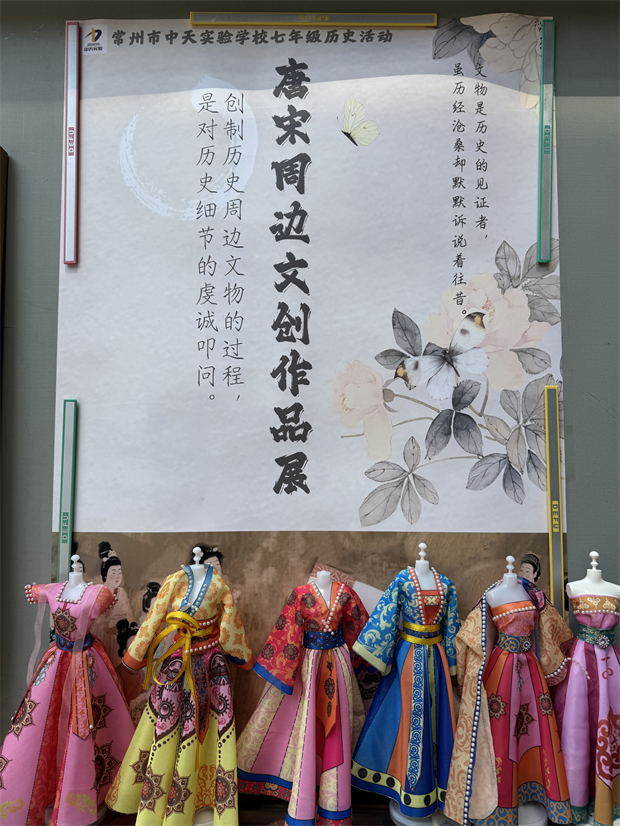 常州市中天实验学校七年级历史活动
文物是历史的见证者，
虽历经沧桑却默默诉说着往昔。
唐宋周边文创作品展
创制历史周边文物的过程，
是对历史细节的虔诚叩问。